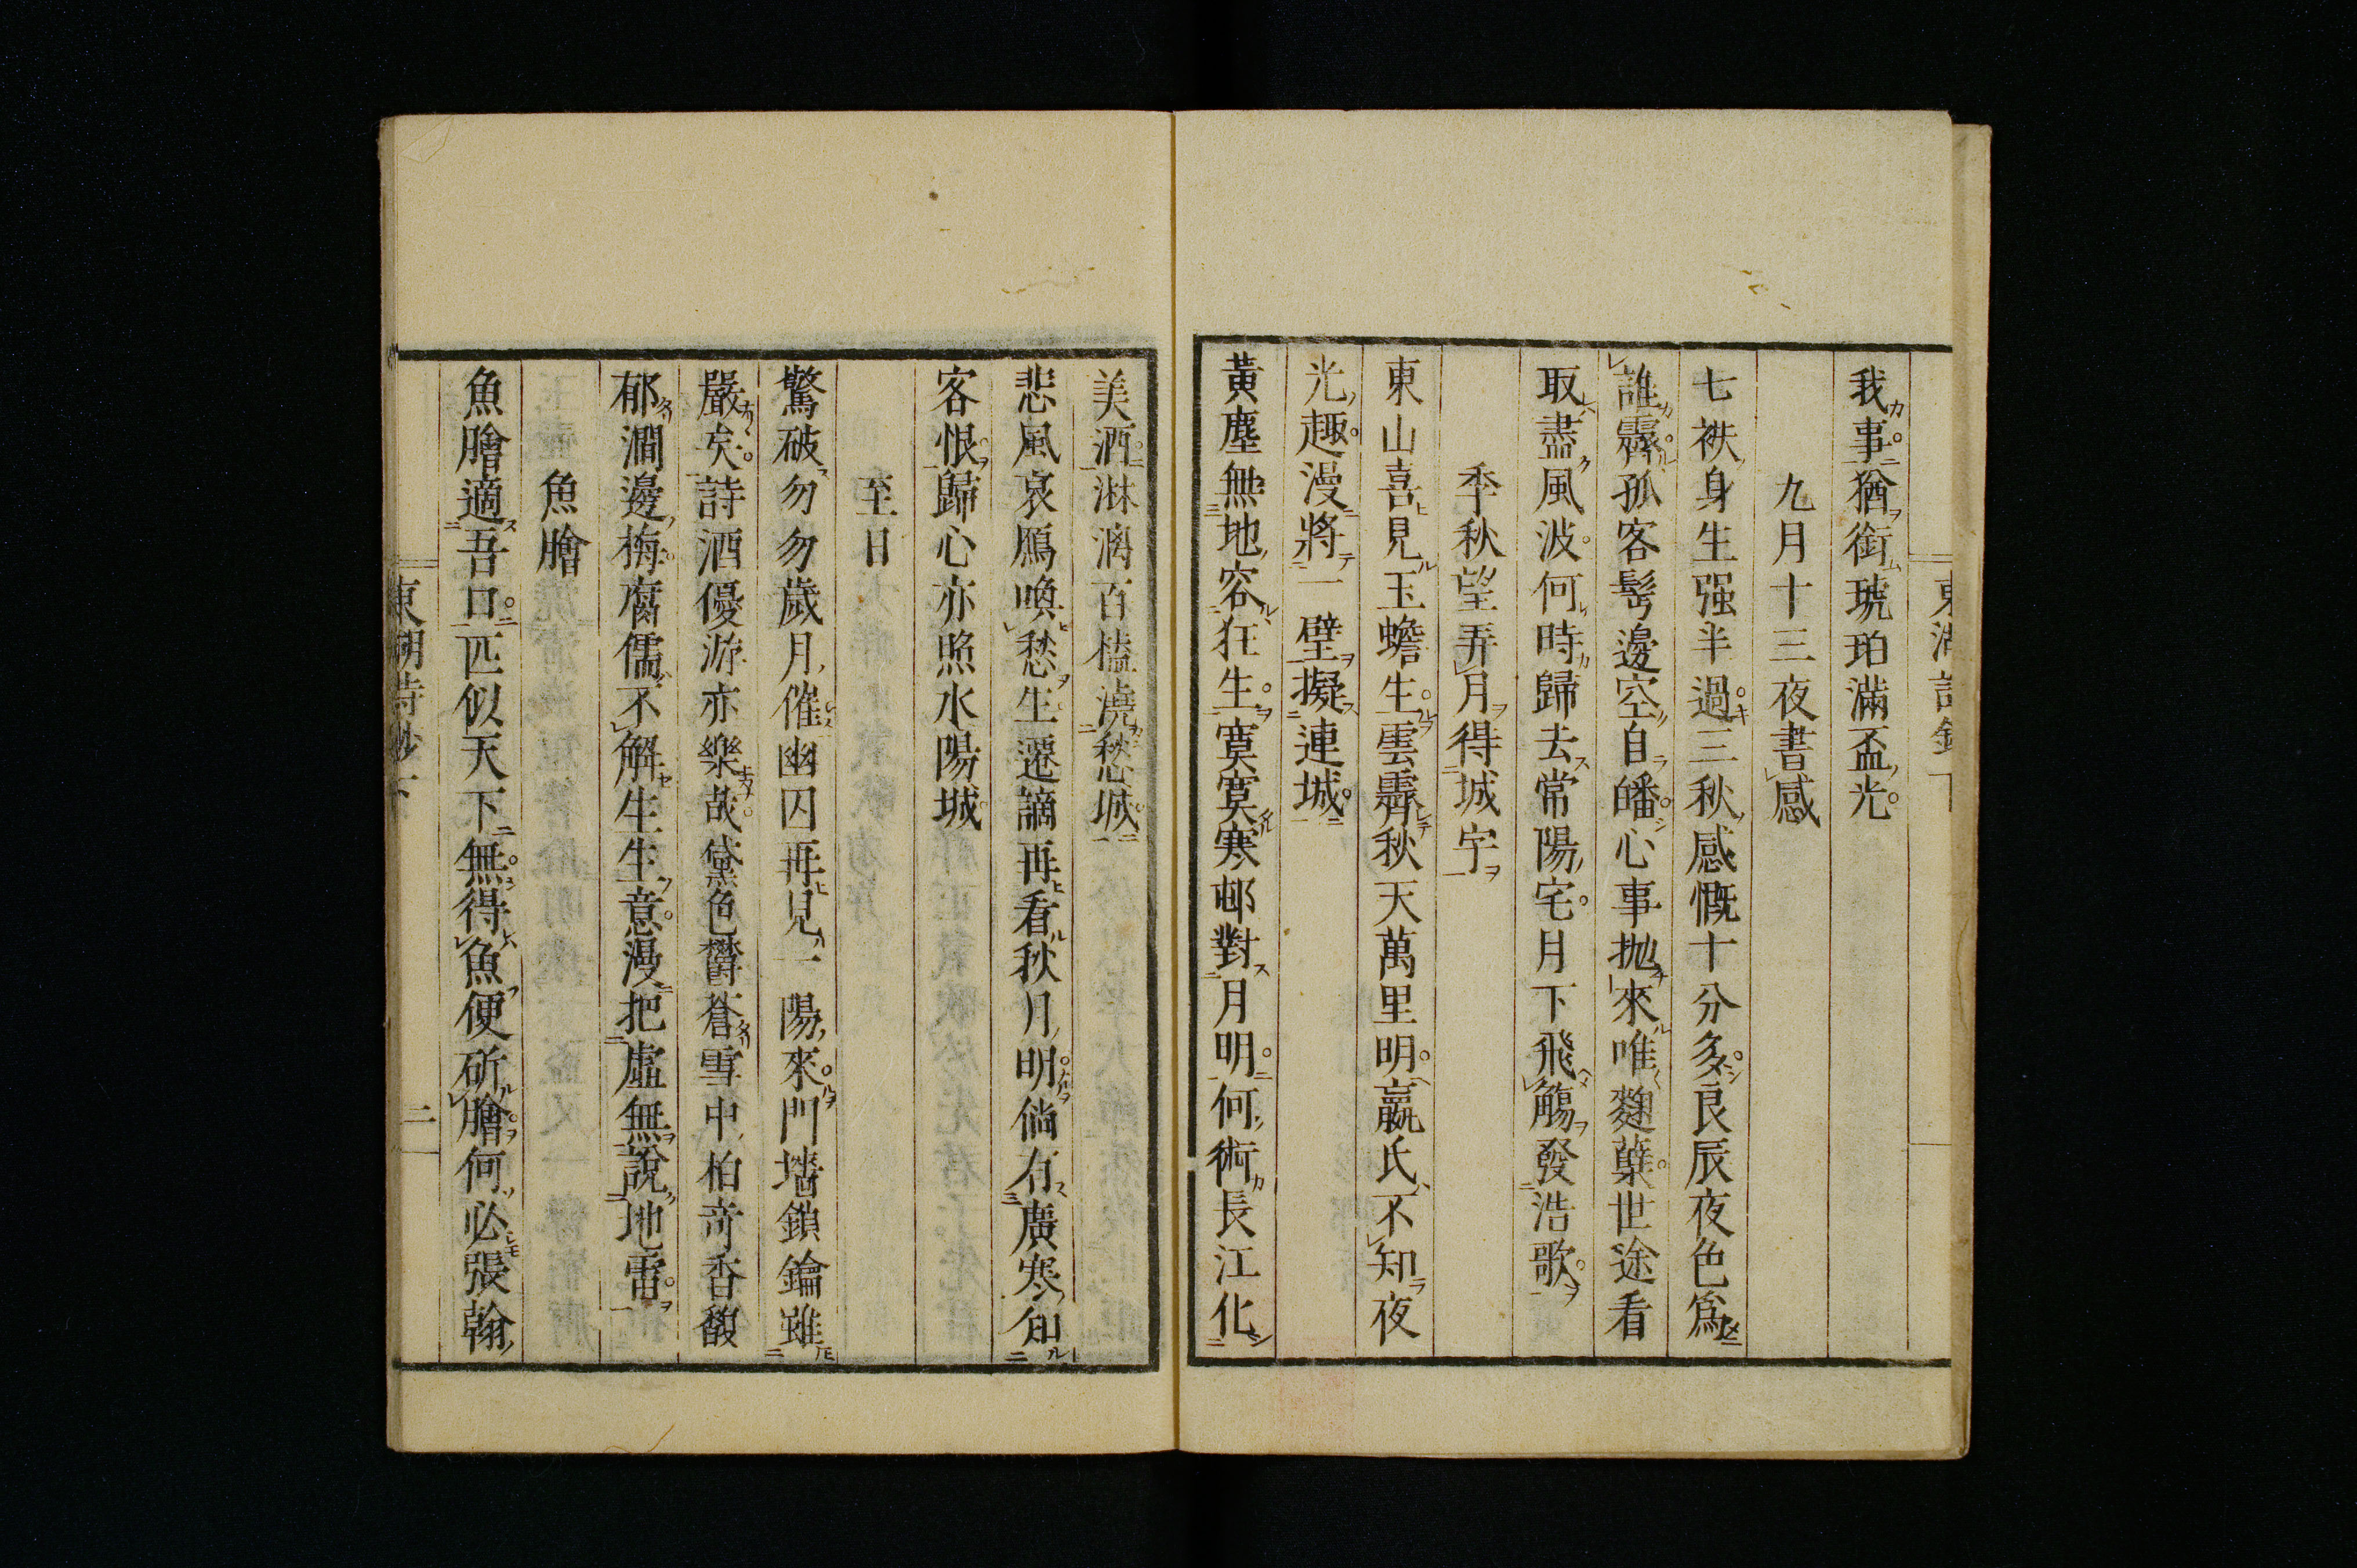 我事猶銜琥珀滿盃光
九月十三夜書感
七袟身生强半過三秋感慨十分多良辰夜色爲
誰霽孤客髩邊空自皤心事抛來唯麴蘖世途看
取盡風波何時歸去常陽宅月下飛觴發浩歌
季秋望弄月得城字
東山喜見玉蟾生雲霽秋天萬里明嬴氏不知夜
光趣漫將一璧擬連城
黃塵無地容狂生寞寞寒邨對月明何術長江化
美酒淋漓百榼澆愁城
悲風哀鴈喚愁生遷謫再看秋月明倘有廣寒知
客恨歸心亦照水陽城
至日
驚破勿勿歲月催幽囚再見一陽來門墻鎖鑰雖
嚴矣詩酒優游亦樂哉黛色欝蒼雪中柏奇香馥
郁澗邊梅腐儒不解生生意漫把虛無說地雷
魚膾
魚膾適吾口匹似天下無得魚便斫膾何必張翰
東湖詩鈔下
二